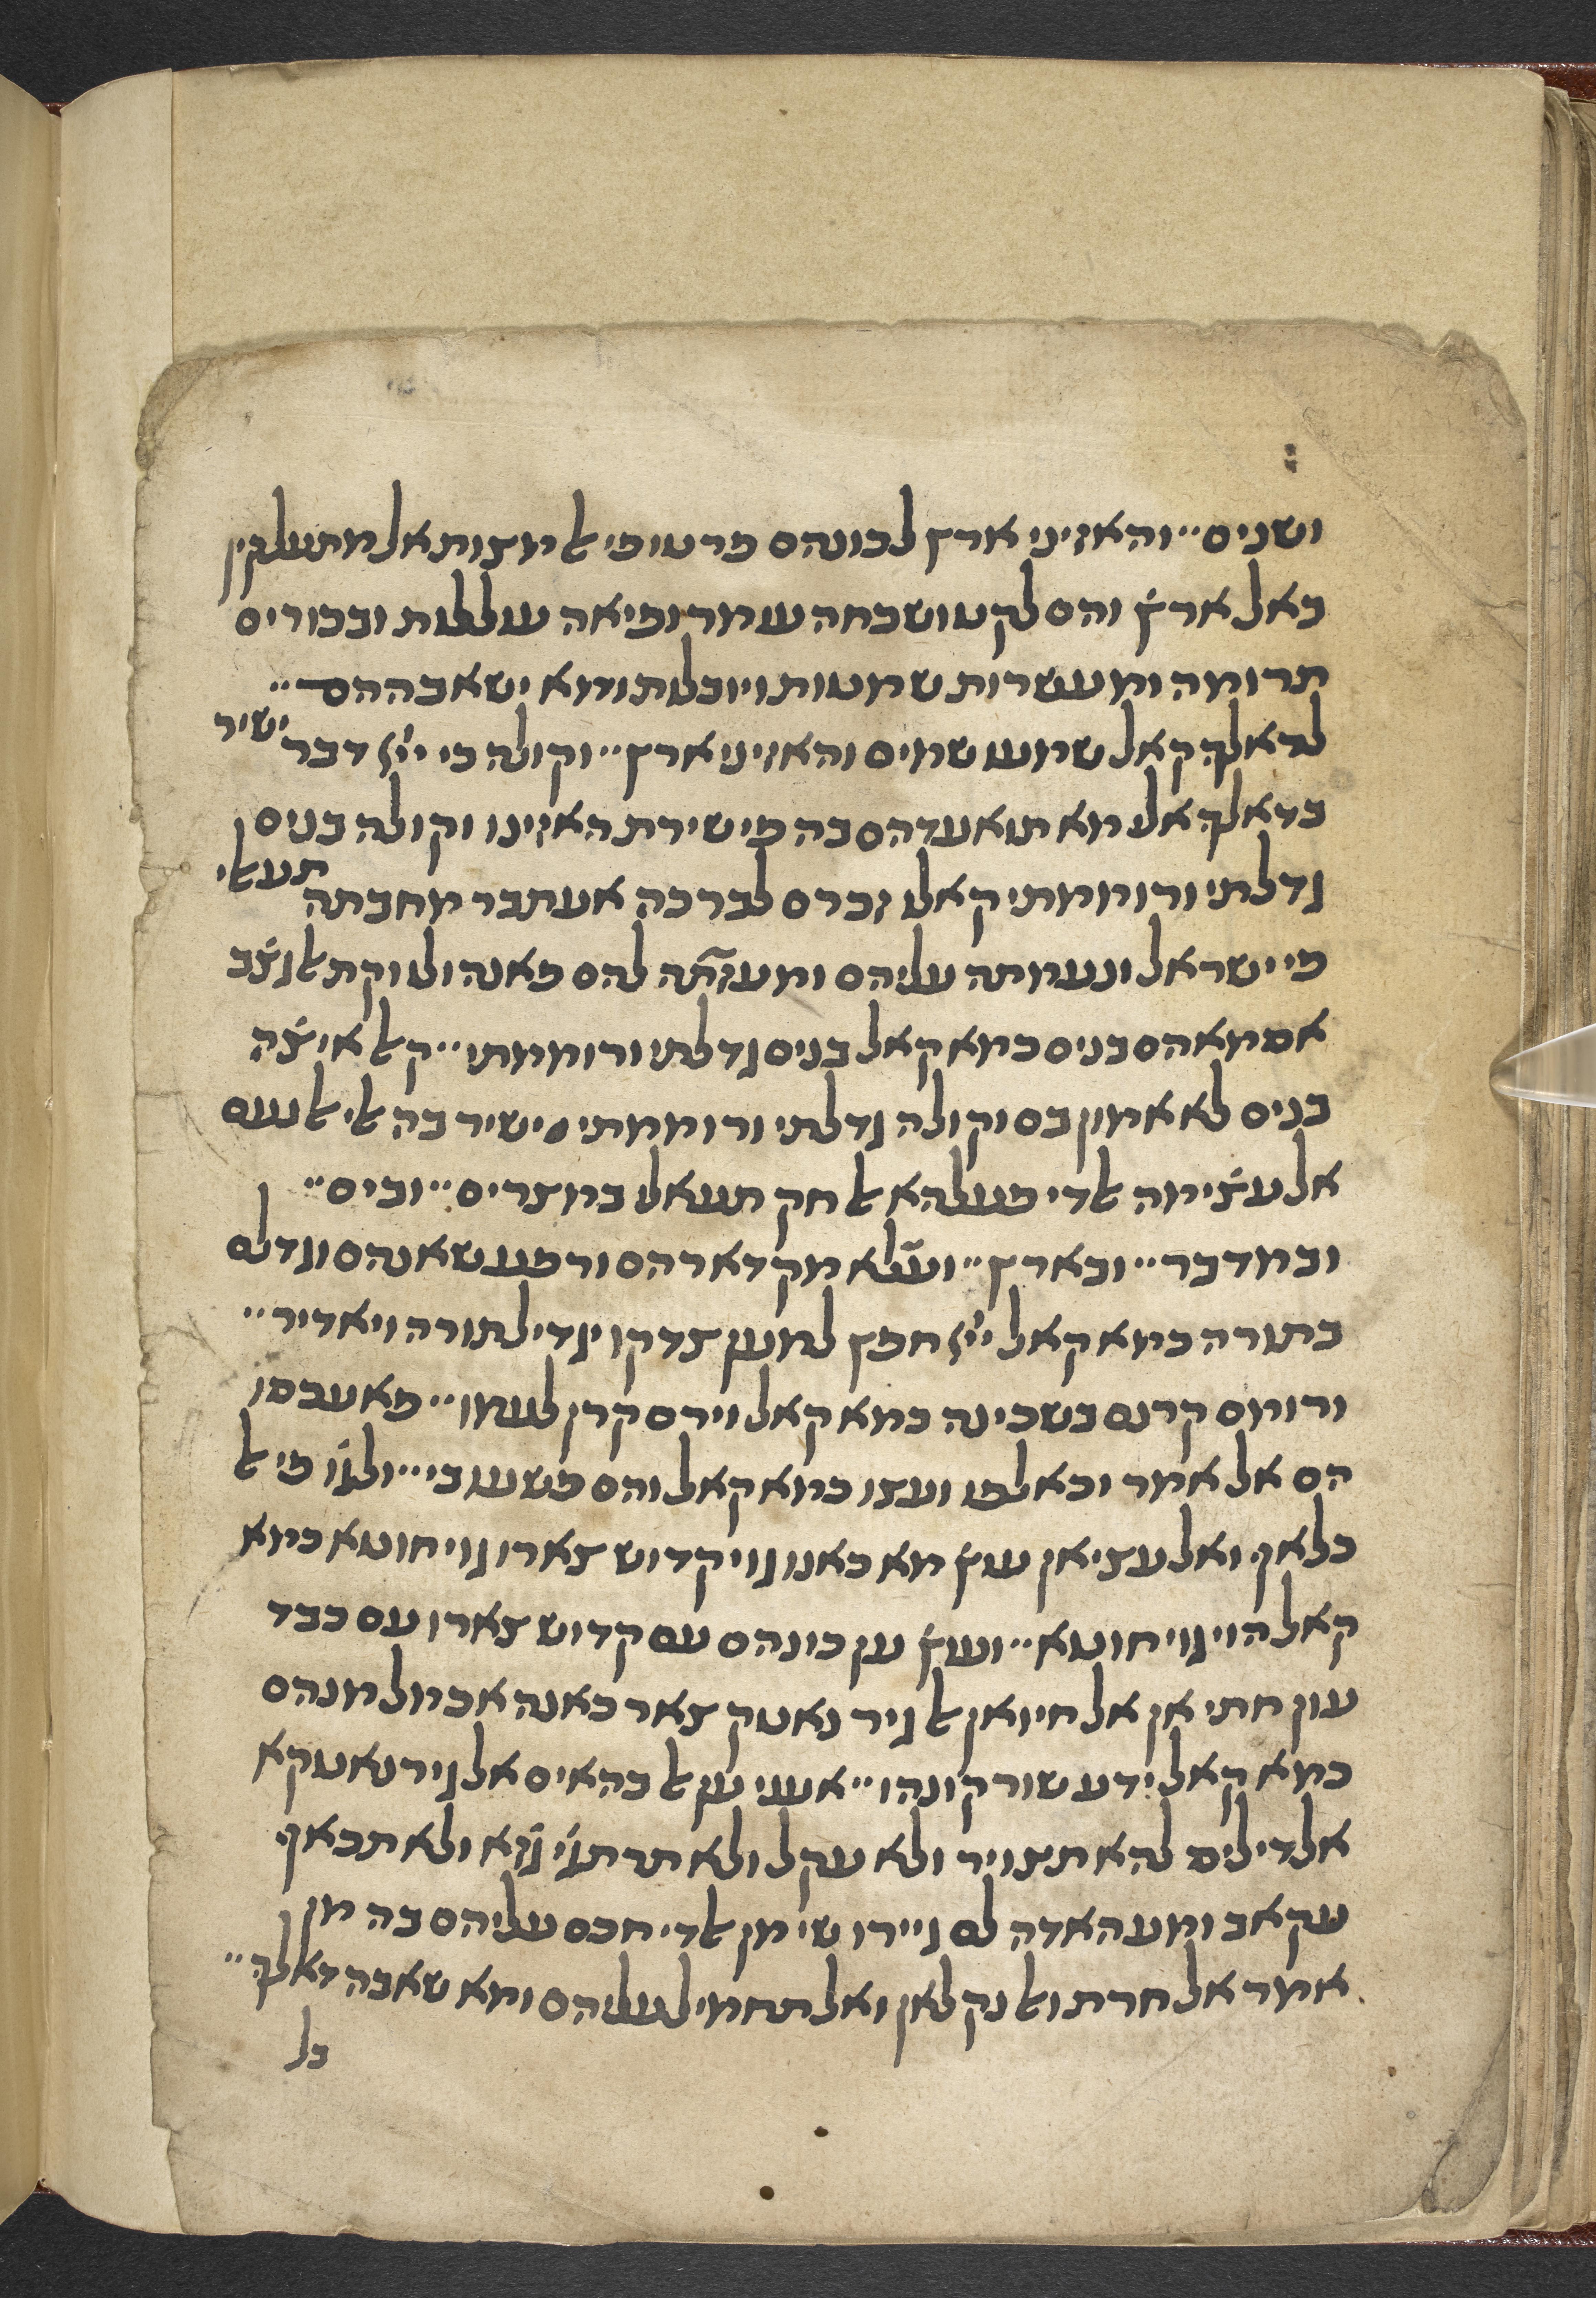 ושנים״ והאזיני ארץ לכונהם פרטו פי אל מצות אל מתעלקין
באל ארץ̇ והם לקט ושכחה עמר ופיאה עוללות ובכורים
תרומה ומעשרות שמטות ויובלות ומא ישאבההם״
לדאלך קאל שמעו שמים והאזיני ארץ״ וקולה כי ייי דבר ישיר
בדאלך אלי מא תואעדהם בה פי שירת האזינו וקולה בנים
גדלתי ורוממתי קאלו ז̇כרם לברכה אעתבר מחבתה תעאלי
פי ישראל ונעמתה עליהם ומעזתה להם פאנה ולו וקת אלגצ̇ב
אסמאהם בנים כמא קאל בנים גדלתי ורוממתי״ וקאל איצ̇ה
בנים לא אמון בם וקולה גדלתי ורוממתי ישיר בה אלי אלנעם
אל עצ̇ימה אלדי פעלהא אל חק תעאלי במצרים״ ובים״
ובמדבר״ ובארץ״ ועלא מקדארהם ורפע שאנהם וגדלם
בתורה כמא קאל ייי חפץ למען צדקו יגדיל תורה ויאדיר״
ורומם קרנם בשכינה כמא קאל וירם קרן לעמו״ פאעכסו
הם אל אמר וכאלפו ועצו כמא קאל והם פשעו בי״ ולג̇ו פי אל
כלאף ואל עציאן עוץ̇ מא כאנו גוי קדוש צארו גוי חוטא כמא
קאל הוי גוי חוטא״ ועוץ̇ ען כונהם עם קדוש צארו עם כבד
עון חתי אן אל חיואן אל גיר נאטק צאר כאנה אכמל מנהם
כמא קאל ידע שור קונהו״ אעני ען אל בהאים אל גיר נאטקא
אלדי ליס להא תצויר ולא עקל ולא תרתג̇י ג̇זא ולא תכאף
עקאב ומע האדה לם גיירו שי מן אלדי חכם עליהם בה מן
אמר אל חרת ואל נקלאן ואל תחמיל עליהם ומא שאבה דאלך״
בל